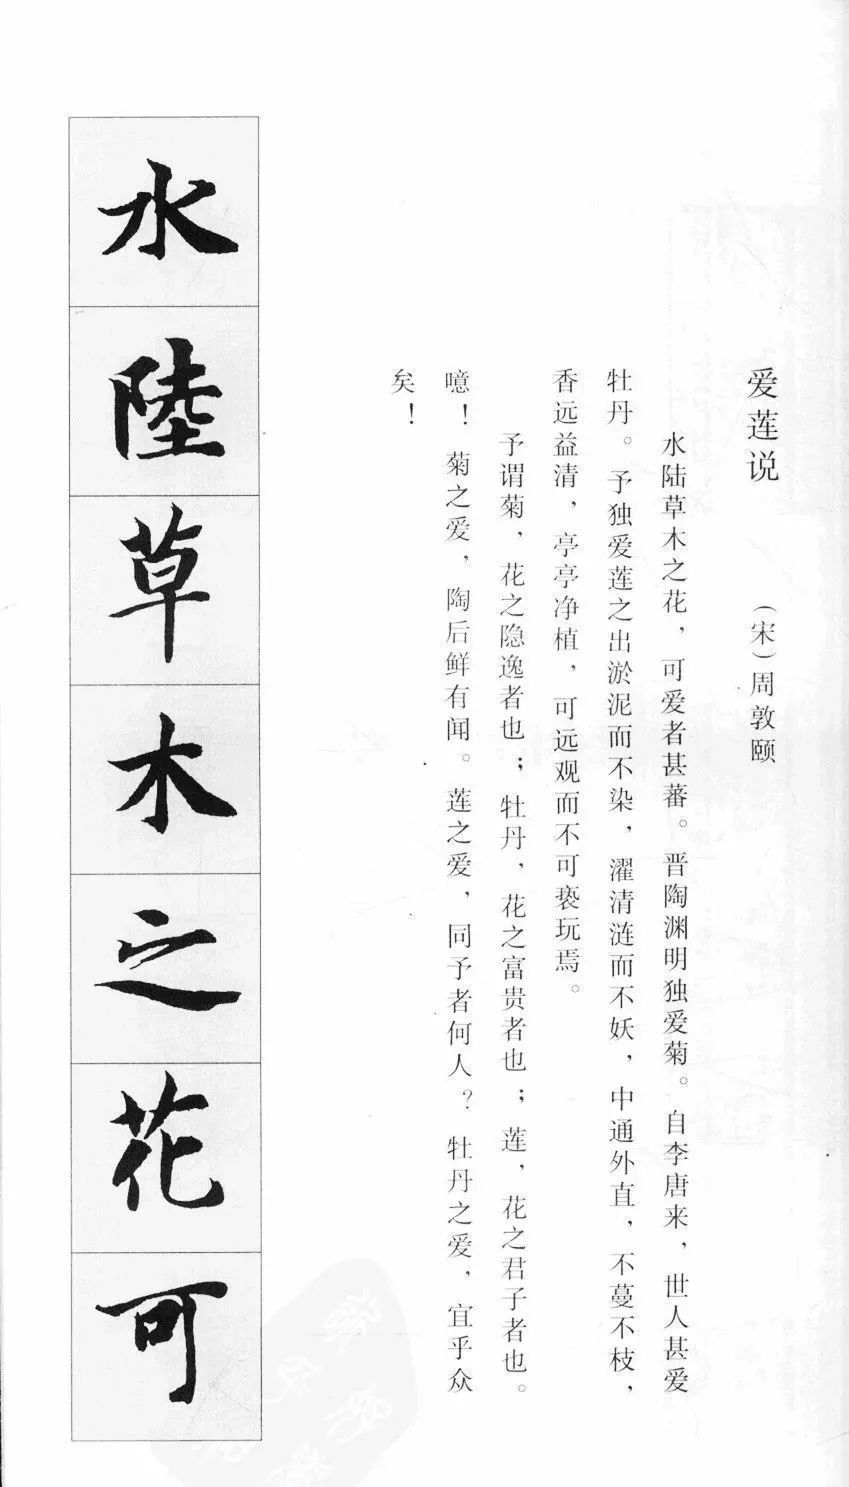 爱莲说 （宋）周敦颐
水陆草木之花，可爱者甚蕃。晋陶渊明独爱菊。自李唐来，世人甚爱
牡丹。予独爱莲之出淤泥而不染，濯清涟而不妖，中通外直，不蔓不枝，
香远益清，亭亭净植，可远观而不可亵玩焉。
予谓菊，花之隐逸者也；牡丹，花之富贵者也；莲，花之君子者也。
噫！菊之爱，陶后鲜有闻。莲之爱，同予者何人？牡丹之爱，宜乎众
矣！
水陸草木之花可